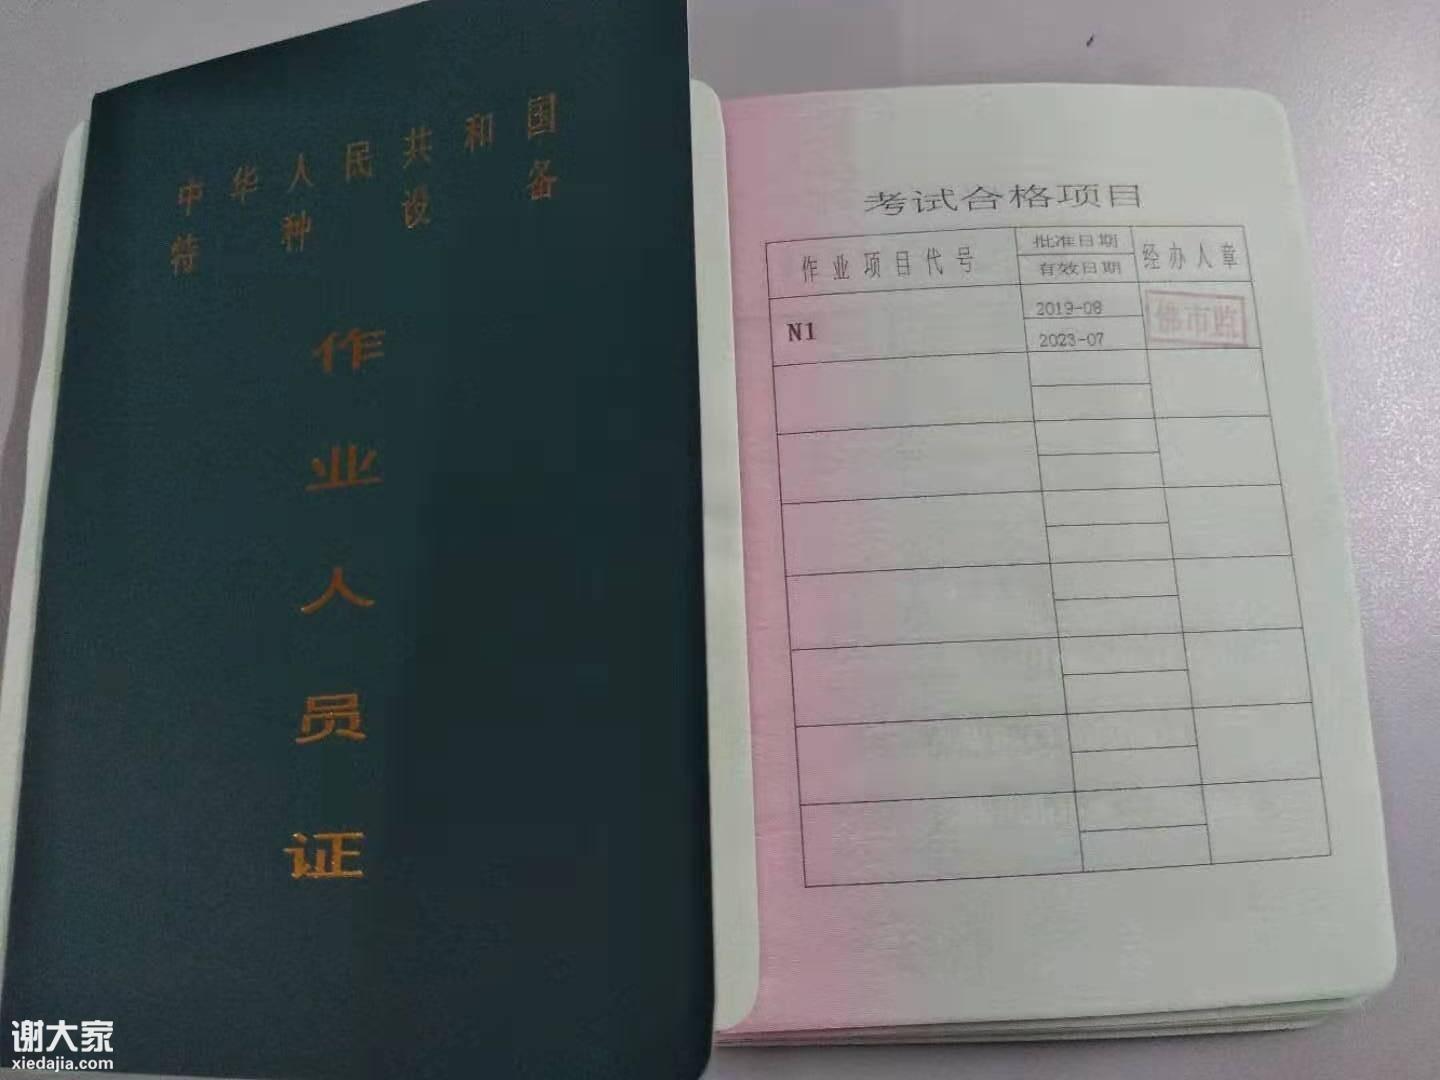 中华人民共和国
特种设备
作业人员证
考试合格项目
作业项目代号
批准日期
有效日期
经办人章
N1
2019-08
2023-07
佛市监
谢大家
xiedajia.com